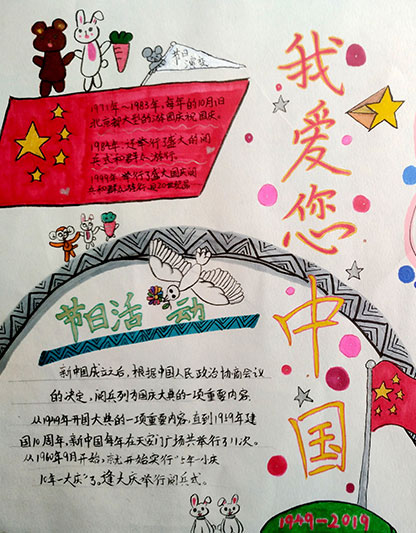 节日
演变
1971年~1983年，每年的10月1日
北京都大型的游园庆祝国庆。
1984年，还举行了盛大的阅
兵式和群众游行。
1999年 举行了盛大国庆阅
兵和群众游行
我爱您中国
节日活动
新中国成立之后，根据中国人民政治协商会议
的决定，阅兵列为国庆大典的一项重要内容。
从1949年开国大典的一项重要内容，直到1959年建
国10周年，新中国每年在天安门广场共举行了11次。
从1960年9月开始，就开始实行“五年一小庆
10年一大庆”了。逢大庆举行阅兵式。
1949-2019